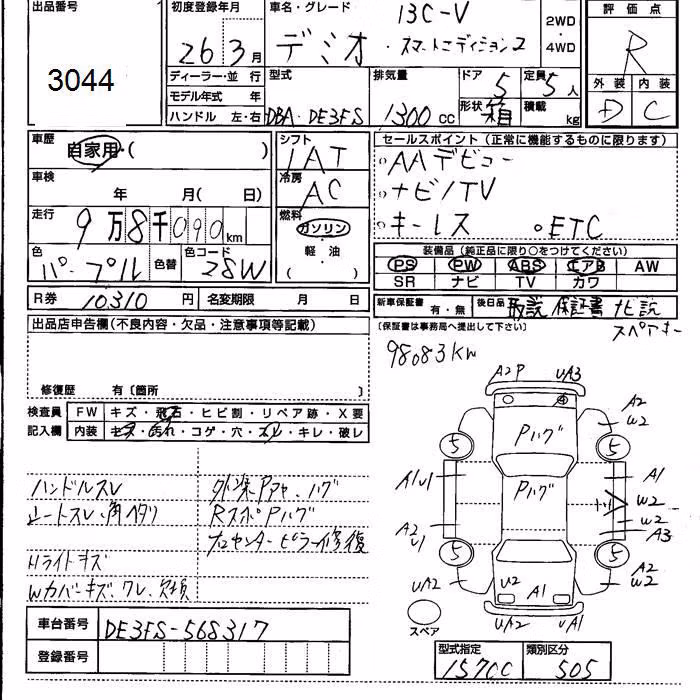 出品番号
3044
初度登録年月
26 3月
車名・グレード
13C-V
デミオ・スマートエディション2
2WD
・
4WD
評価点
R
外装 内装
D C
ディーラー・並行
モデル年式 年
ハンドル 左・右
型式
DBA-DE3FS
排気量
1300cc
ドア 5
定員 5人
形状 箱
積載 kg
車歴
自家用・( )
車検
年 月( 日)
走行
9万8千090km
色
パープル
色替
色コード
28W
シフト
IAT
冷房
AC
燃料
ガソリン
・
軽・油
( )
R券 10310円
名変期限 月 日
セールスポイント(正常に機能するものに限ります)
○AAデビュー
○ナビ/TV
○キーレス ○ETC
装備品(純正品に限り○をつけてください)
PS PW ABS エアB AW
SR ナビ TV カワ
新車保証書 有・無
後日品 取説 保証書 ナビ説
スペアキー
(保証書は事務局へ提出して下さい)
出品店申告欄(不良内容・欠品・注意事項等記載)
修復歴 有〔箇所 〕
98083km
検査員
記入欄
FW キズ・飛石・ヒビ割・リペア跡・X要
内装 キズ・汚れ・コゲ・穴・スレ・キレ・破レ
ハンドルスレ
シートスレ、角ヘタリ
Hライトキズ
Wカバーキズ、ワレ、欠損
外装Pアセ、ハゲ
RスポPハゲ
右センターピラー修復
A2P UA3
A2
W2
Pハゲ
5 5
A1U1 A1
Pハゲ
W2
W2
A2
U1
A3
5 5
A2
W2
UA2
U2 A1
UA2 UA1
スペア
車台番号 DE3FS-568317
登録番号
型式指定 類別区分
15700 505